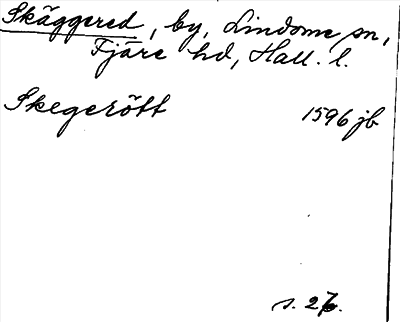 Skäggered, by, Lindome sn,
Fjäre hd, Hall. l.
Skegerött 1596 jb
s. 26.